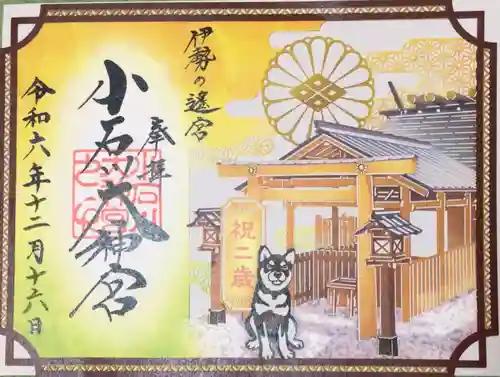 伊勢の遙宮
奉拝
小石川大神宮
令和六年十二月十六日
祝二歳